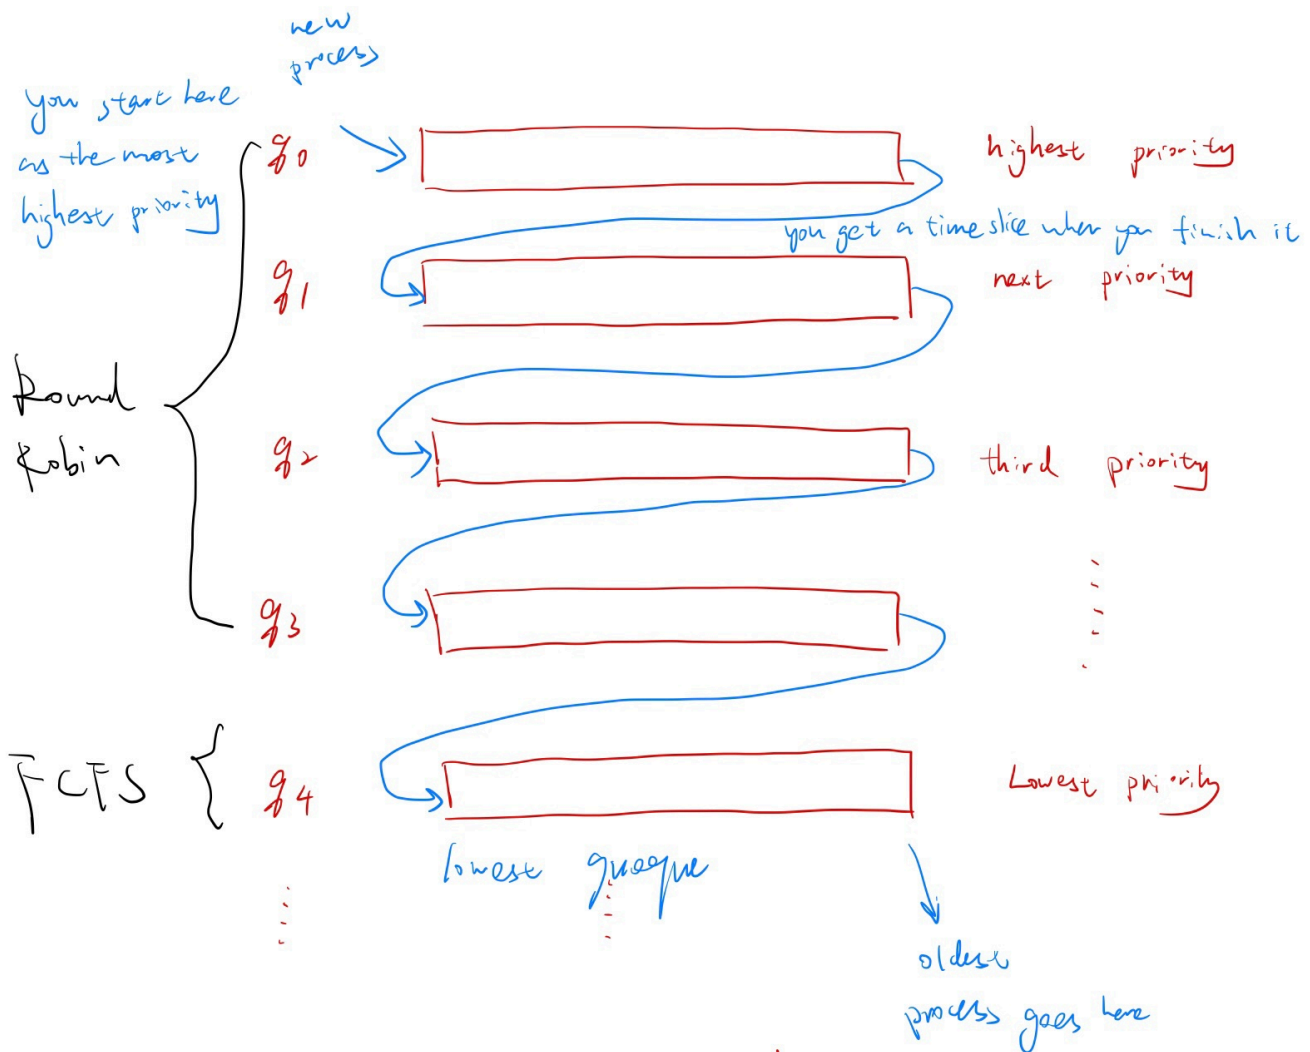 new
process
you start here
as the most
highest priority
q0
highest priority
you get a time slice when you finish it
q1
next priority
Round
Robin
q2
third priority
q3
FCFS
q4
Lowest priority
lowest
oldest
process goes here